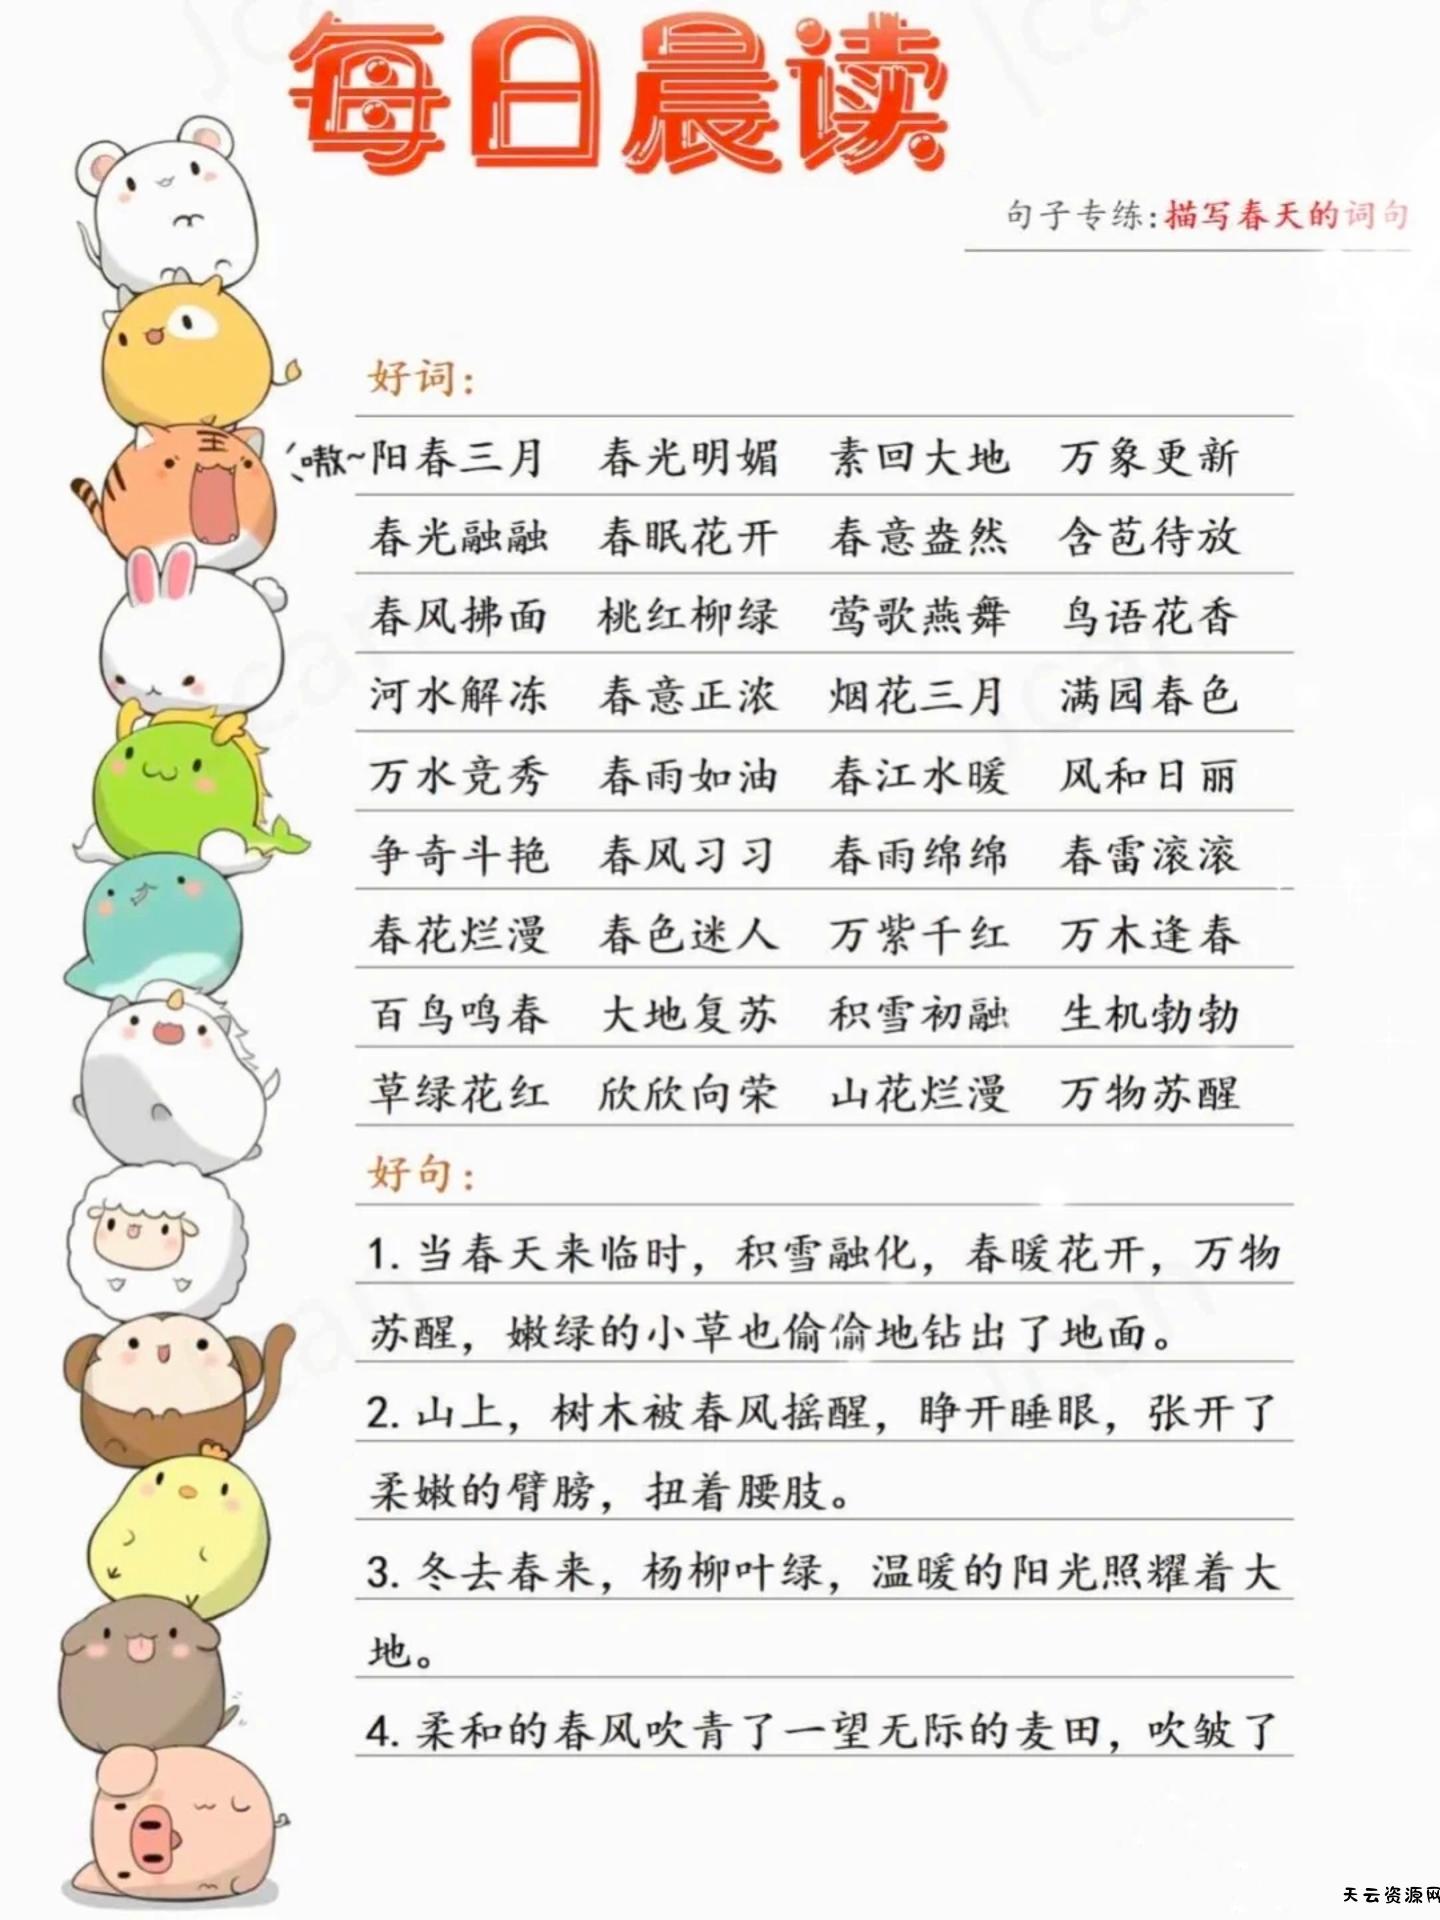 每日晨读
句子专练:描写春天的词句
好词：
嗷~
阳春三月 春光明媚 素回大地 万象更新
春光融融 春眠花开 春意盎然 含苞待放
春风拂面 桃红柳绿 莺歌燕舞 鸟语花香
河水解冻 春意正浓 烟花三月 满园春色
万水竞秀 春雨如油 春江水暖 风和日丽
争奇斗艳 春风习习 春雨绵绵 春雷滚滚
春花烂漫 春色迷人 万紫千红 万木逢春
百鸟鸣春 大地复苏 积雪初融 生机勃勃
草绿花红 欣欣向荣 山花烂漫 万物苏醒
好句：
1. 当春天来临时，积雪融化，春暖花开，万物
苏醒，嫩绿的小草也偷偷地钻出了地面。
2. 山上，树木被春风摇醒，睁开睡眼，张开了
柔嫩的臂膀，扭着腰肢。
3. 冬去春来，杨柳叶绿，温暖的阳光照耀着大
地。
4. 柔和的春风吹青了一望无际的麦田，吹皱了
天云资源网